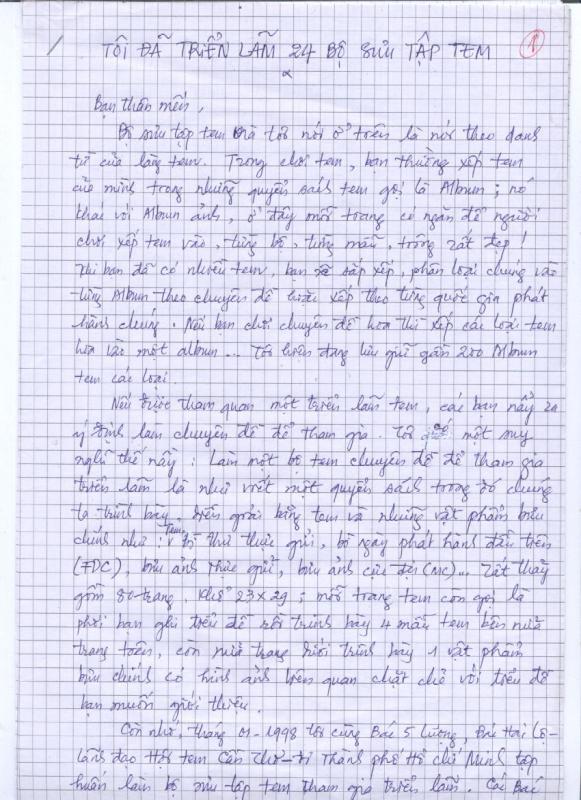 TÔI ĐÃ TRIỂN LÃM 24 BỘ SƯU TẬP TEM
1
Bạn thân mến,
Bộ sưu tập tem mà tôi nói ở trên là nói theo danh
từ của làng tem. Trong chơi tem, bạn thường xếp tem
của mình trong những quyển sách tem gọi là Album; nó
khác với Album ảnh, ở đây mỗi trang có ngăn để người
chơi xếp tem vào, từng bộ, từng mẫu, trông rất đẹp!
Khi bạn đã có nhiều tem, bạn sẽ sắp xếp, phân loại chúng vào
từng Album theo chuyên đề hoặc xếp theo từng quốc gia phát
hành chúng. Nếu bạn chơi chuyên đề hoa thì xếp các loại tem
hoa vào một album... Tôi hiện đang lưu giữ gần 200 Album
tem các loại.
Nếu được tham quan một triển lãm tem, các bạn nẩy ra
ý định làm chuyên đề để tham gia. Tôi có một suy
nghĩ thế này: Làm một bộ tem chuyên đề để tham gia
triển lãm là như viết một quyển sách trong đó chúng
ta trình bày, diễn giải bằng tem và những vật phẩm bưu
chính như: Tem, bì thư thực gửi, bì ngày phát hành đầu tiên
(FDC), bưu ảnh thực gửi, bưu ảnh cực đại (MC)... Tất thảy
gồm 80 trang, khổ 23x29; mỗi trang tem còn gọi là
phơi bạn ghi tiểu đề rồi trình bày 4 mẫu tem bên nửa
trang trên, còn nửa trang dưới trình bày 1 vật phẩm
bưu chính có hình ảnh liên quan chặt chẽ với tiểu đề
bạn muốn giới thiệu.
Còn nhớ, tháng 01-1998 tôi cùng Bác 5 Lương, Bác Hai Lộ-
Lãnh đạo Hội tem Cần Thơ-đi Thành phố Hồ Chí Minh tập
huấn làm bộ sưu tập tem tham gia triển lãm. Các Bác